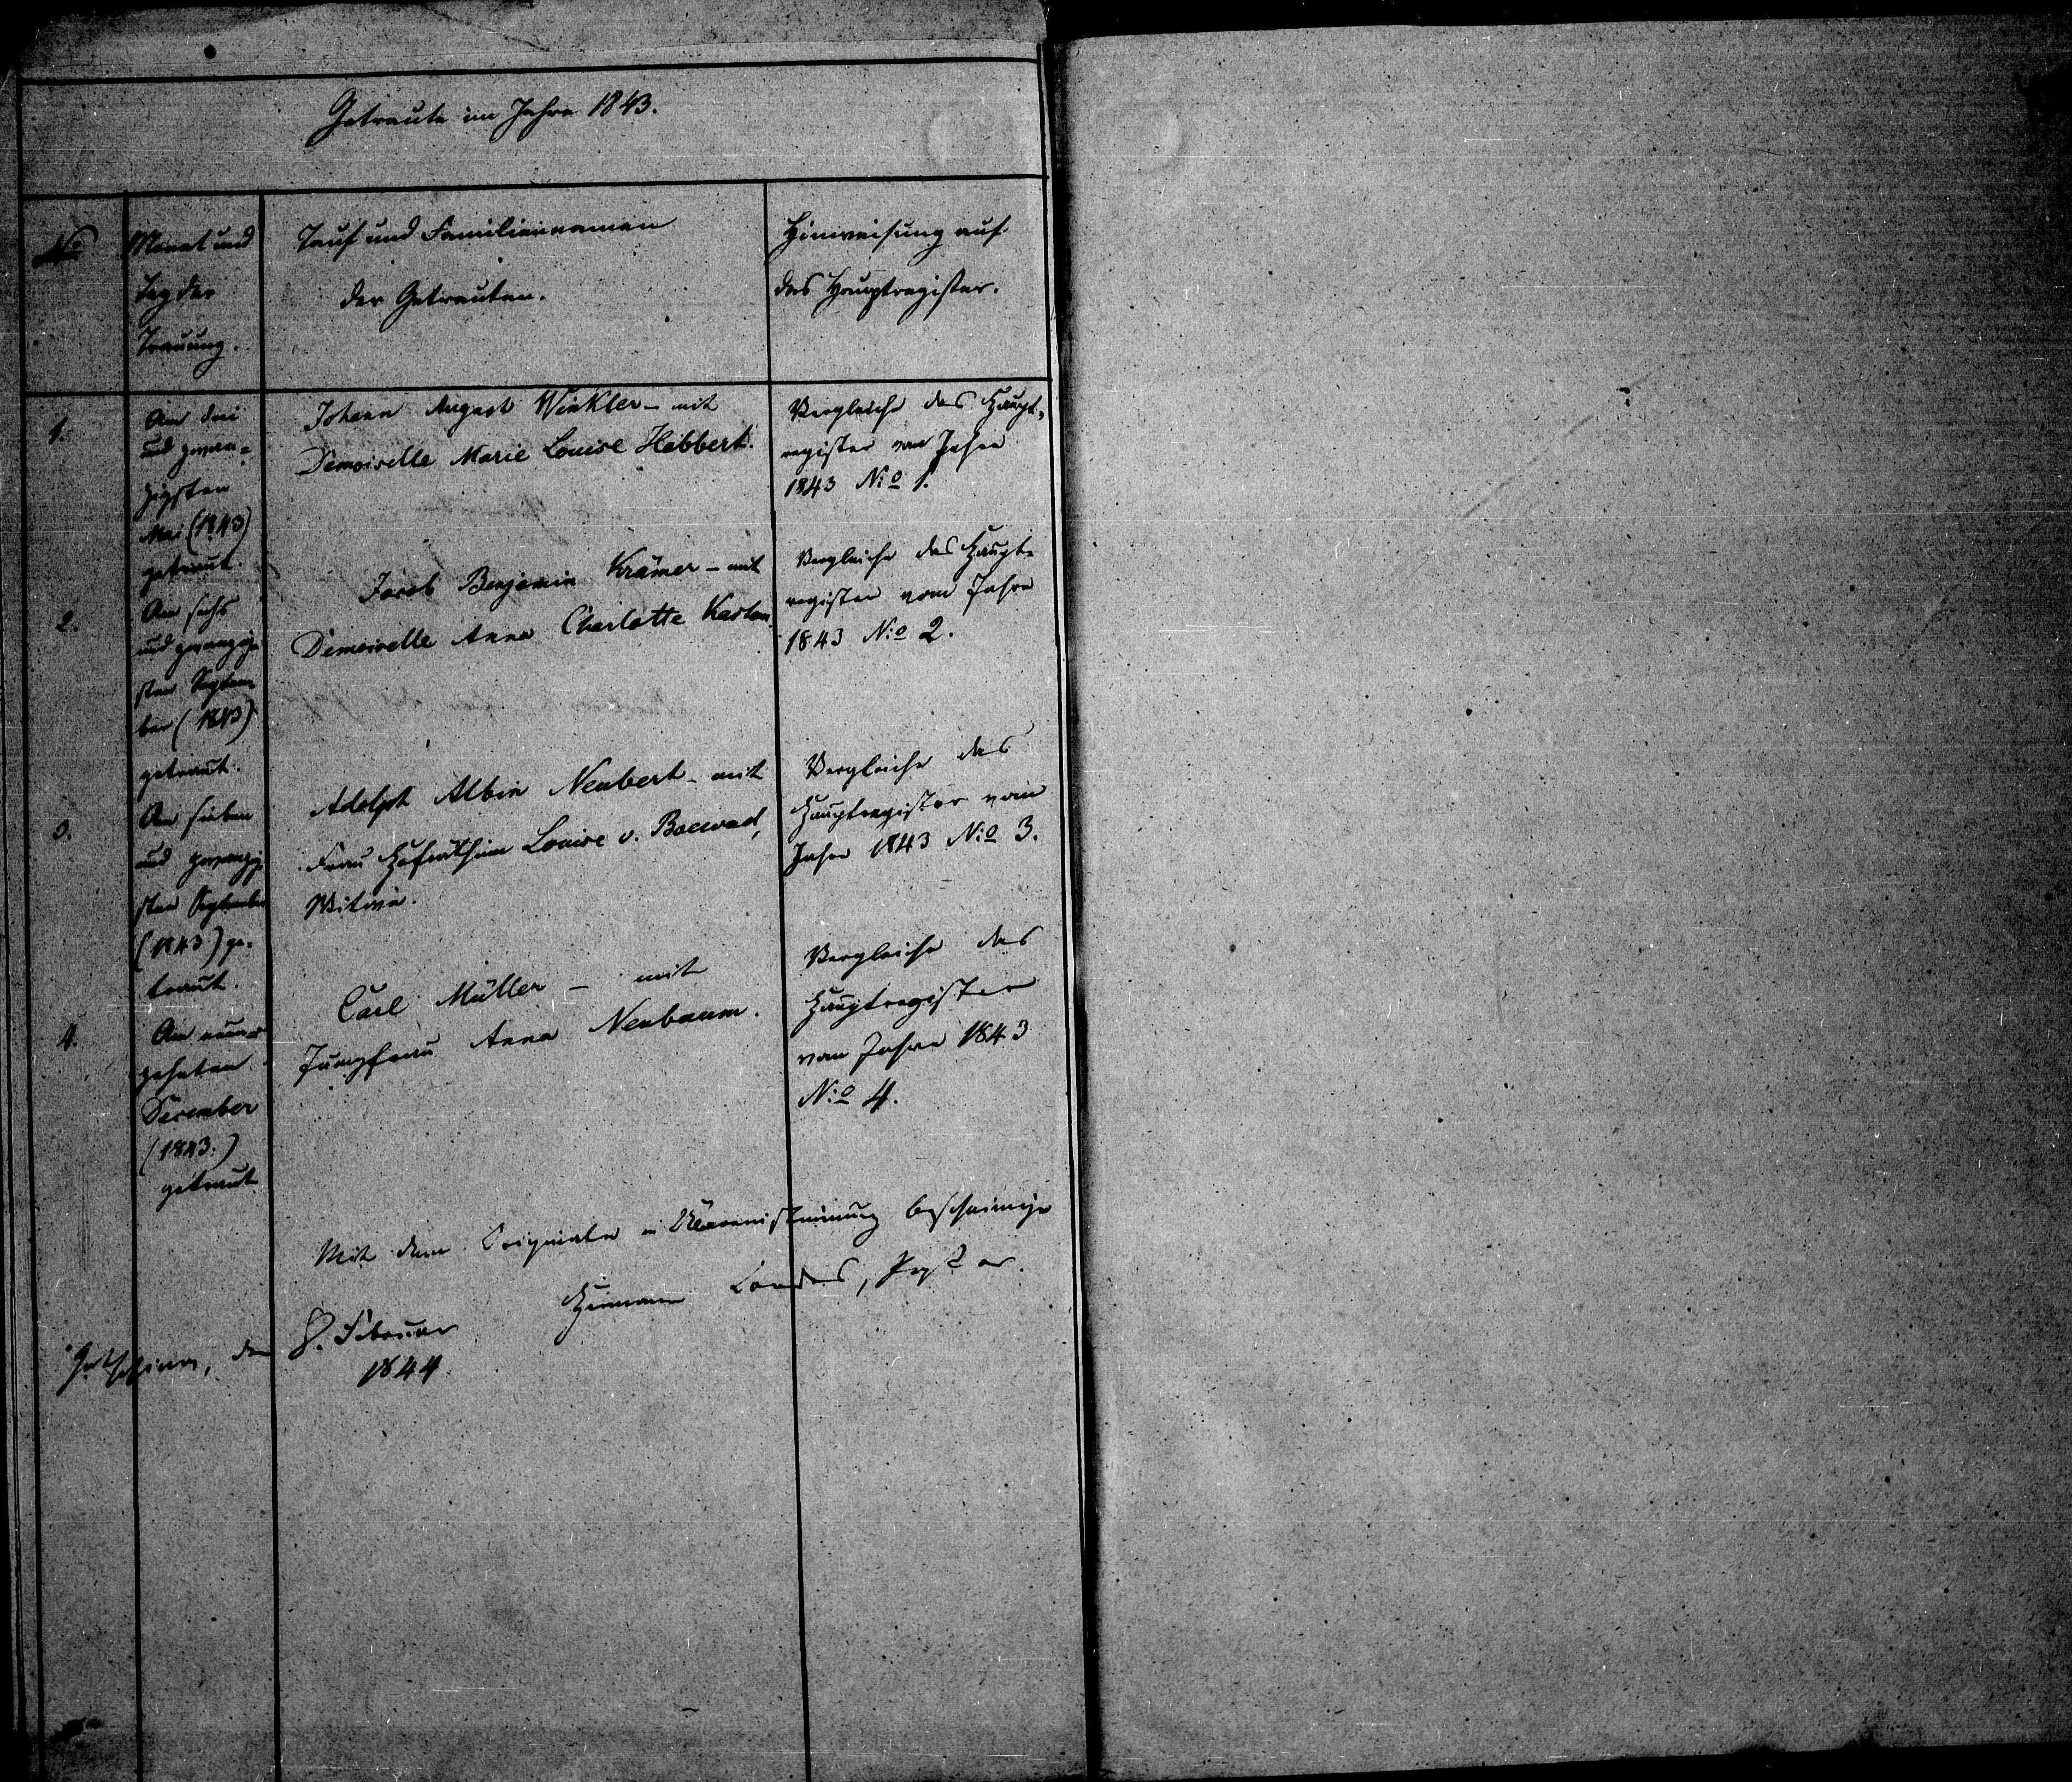 Getraute im Jahre 1843.
No
Monat und
Tag der
Trauung.
Tauf und Familiennamen
der Getrauten.
Hinweisung auf
das Hauptregister.
1.
Am drei
und zwan=
zigsten
Mai (1843)
getraut.
Johann August Winkler – mit
Demoiselle Marie Louise Hebbert.
Vergleiche das Haupt=
register vom Jahre
1843 No 1.
2.
Am sechs
und zwanzig
sten Septem=
ber (1843)
getraut.
Jacob Benjamin Krämer – mit
Demoiselle Anna Charlotte
Vergleiche das Haupt=
register vom Jahre
1843 No 2.
3.
Am sieben
und zwanzig
sten September
(1843) ge=
traut.
Adolph Albin Neubert – mit
Frau Hofräthin Louise v.
Witwe.
Vergleiche das
Hauptregister vom
Jahre 1843 No 3.
4.
Am neun=
zehnten
December
(1843.)
getraut
Carl Müller – mit
Jungfrau Anna Neubaum.
Vergleiche das
Hauptregister
vom Jahre 1843
No 4.
Mit dem Originale in Übereinstimmung bescheinigt
Hermann, Pastor.
Gatschina, den 8. Februar
1844.